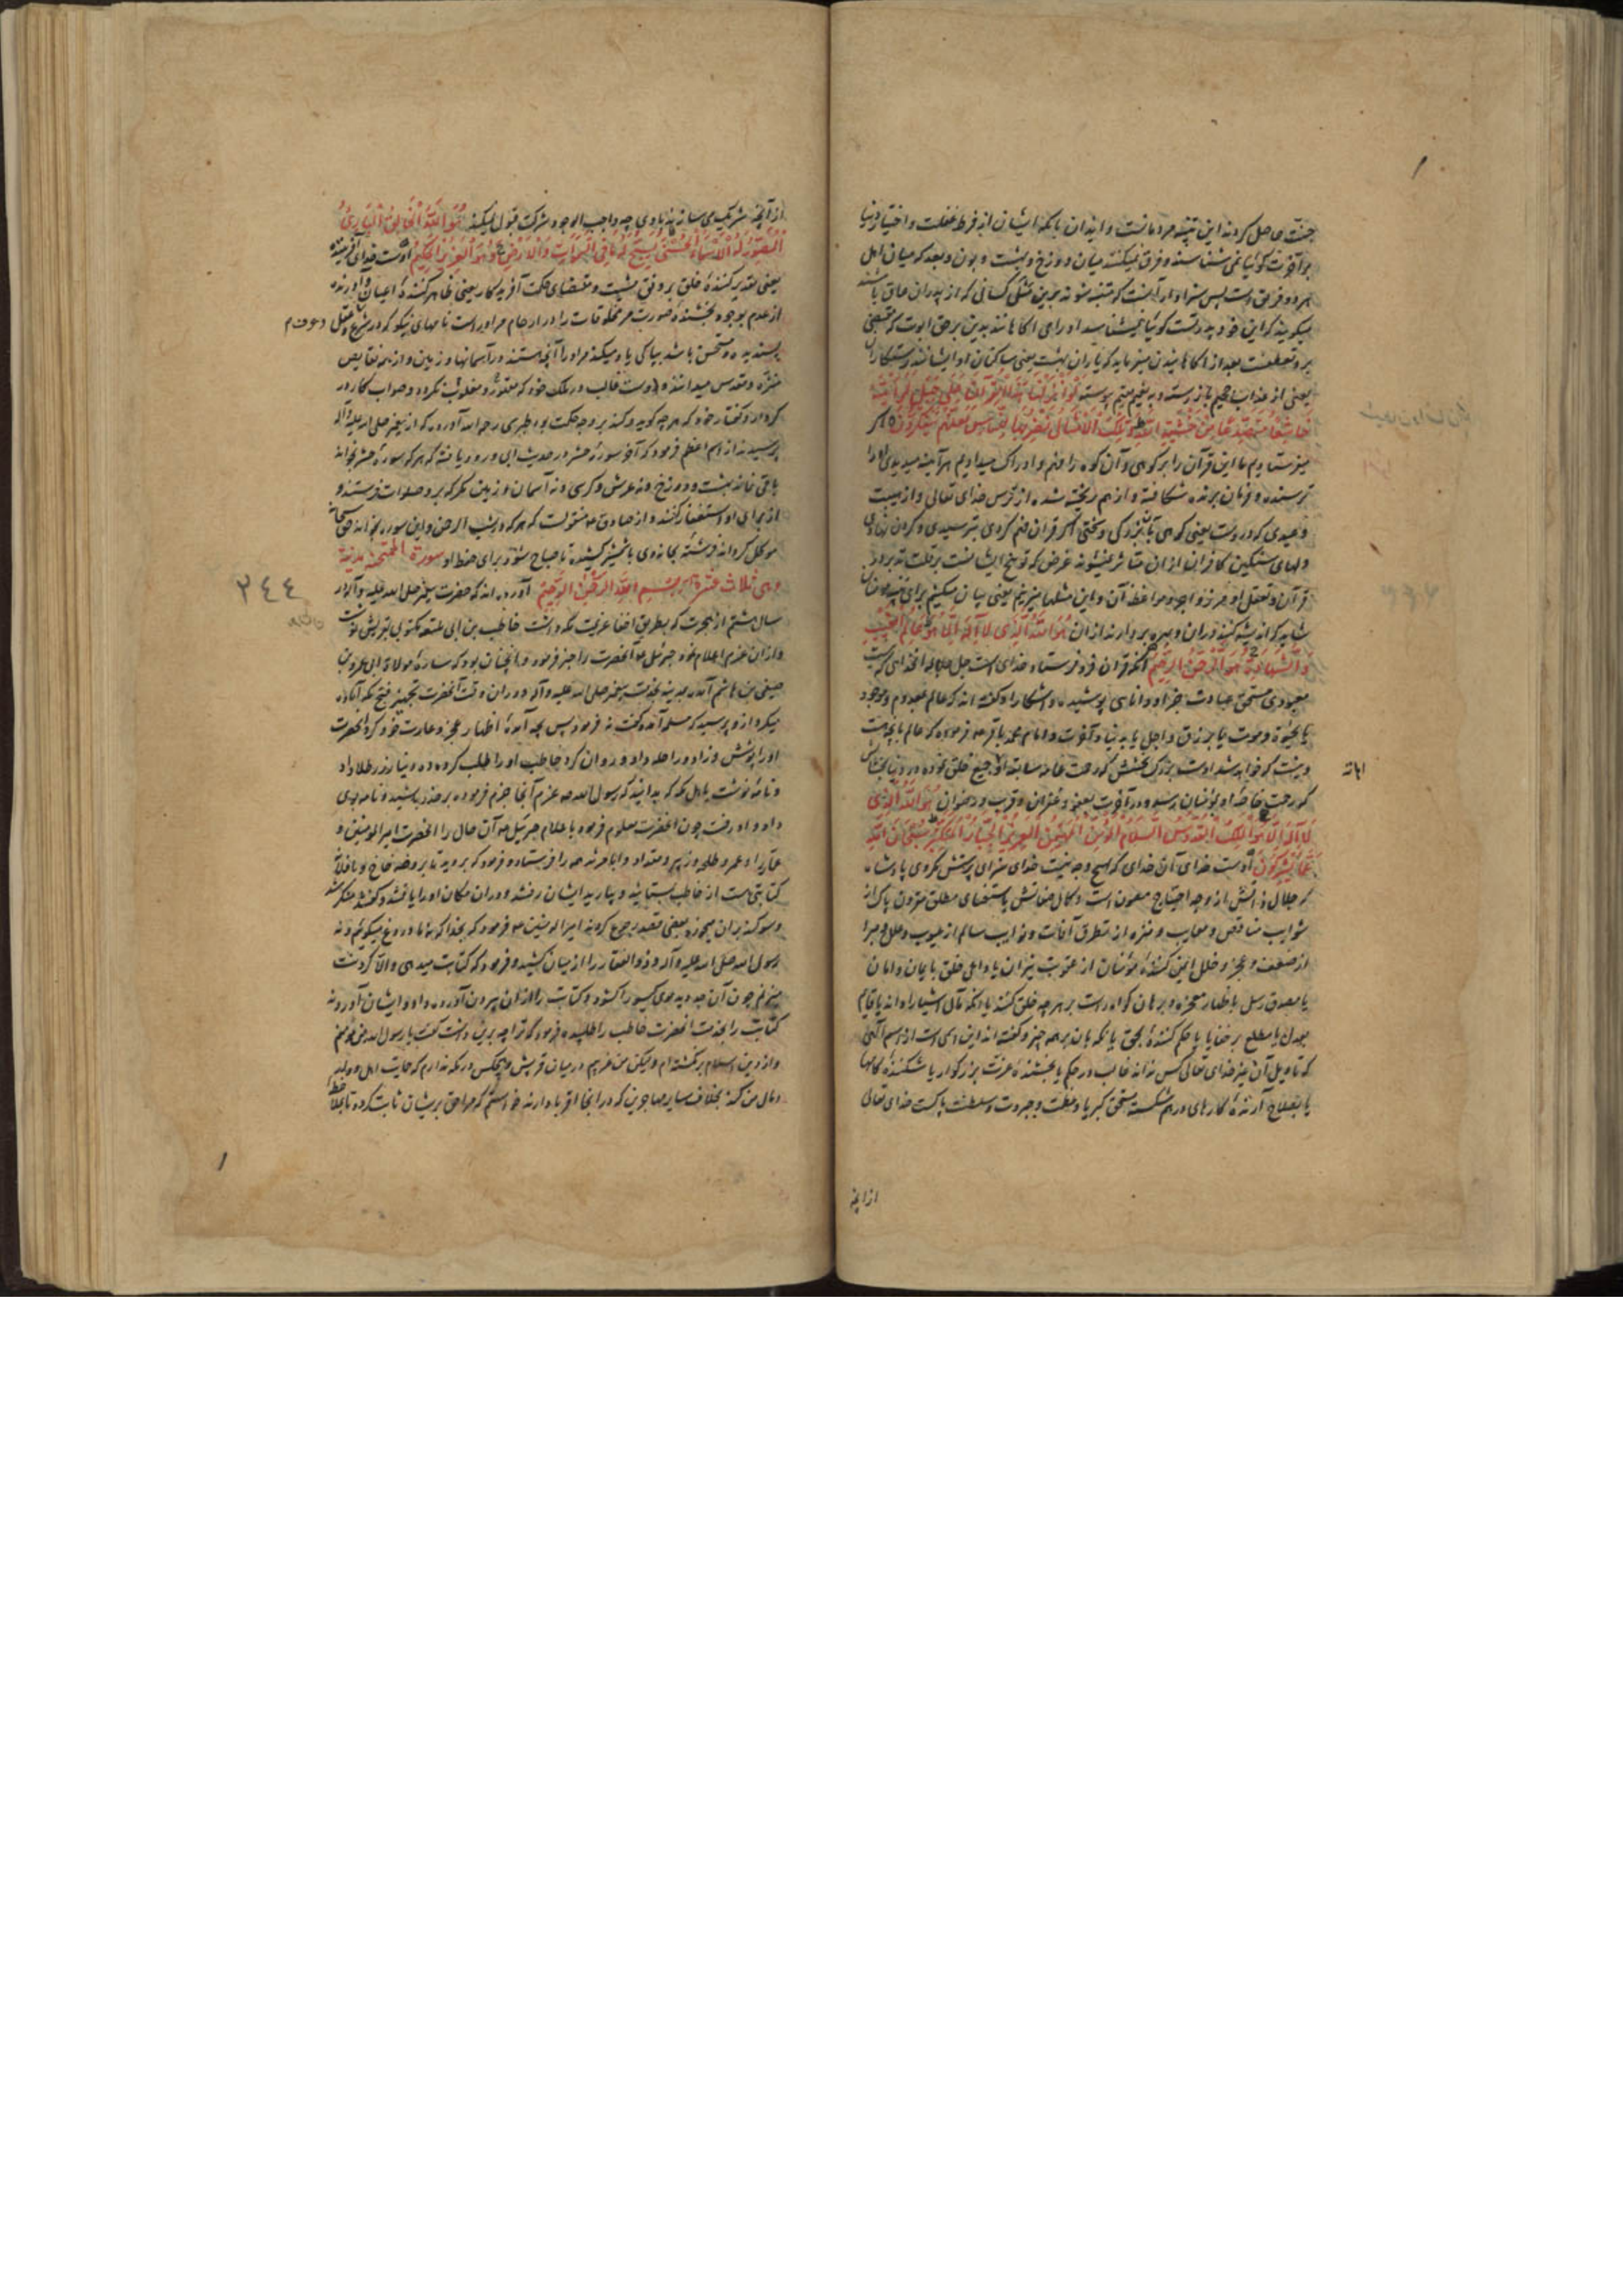 جنت حاصل کردند این تنبیه مردمانست و ایذان بآنکه ایشان از فرط غفلت و اختیار دنیا
بر آخرت کوئیا نمی شناسند و فرق نمیکنند میان دوزخ و بهشت و بون بعید که میان اهل
هر دو فریق است پس سزاوار آنست که متنبه شوند برین مثل کسانی که از پدران عاق باشند
میکویند که این خود پدر تست کوئیا نمیشناسد او را ای آگاهانند بدین بر حق ابوت که مقتضی
بر و تعطفست بعد از آگاهانیدن میفرماید که یاران بهشت یعنی ساکنان او ایشانند رستکاران
یعنی از عذاب جحیم باز رسته و به نعیم مقیم پیوسته لَوْ أَنزَلْنَا هَذَا الْقُرْآنَ عَلَى جَبَلٍ لَرَأَيْتَهُ
خَاشِعًا مُتَصَدِّعًا مِنْ خَشْيَةِ اللَّهِ وَتِلْكَ الْأَمْثَالُ نَضْرِبُهَا لِلنَّاسِ لَعَلَّهُمْ يَتَفَكَّرُونَ اکر
میفرستادیم ما این قرآن را بر کوهی و آن کوه را فهم و ادراک میدادیم هر آینه میدیدی او را
ترسنده و فرمان برنده شکافته و از هم ریخته شده از ترس خدای تعالی و از هیبت
وعیدی که دروست یعنی کوهی بآن بزرکی و سختی اکر قران فهم کردی بترسیدی و کردن نهادی
دلهای سنکین کافران از آن متاثر نمیشوند غرض که توبیخ ایشانست بر قلت تدبر در
قرآن و تعقل اوامر و زواجر و مواعظ آن و این مثلها میزنیم یعنی بیان میکنیم برای مردمان
شاید که اندیشه کنند دران و بهره بردارند ازان هُوَ اللَّهُ الَّذِي لَا إِلَهَ إِلَّا هُوَ عَالِمُ الْغَيْبِ
وَالشَّهَادَةِ هُوَ الرَّحْمَنُ الرَّحِيمُ آنکه قران فرو فرستاد خدای است جل جلاله آنخدای که نیست
معبودی مستحق عبادت جز او دانای پوشیده و آشکارا و کفته اند که عالم بمعدوم و موجود
یا بحیوة و موت یا برزق و اجل یا بدنیا و آخرت و امام محمد باقر ع فرموده که عالم بآنچه هست
و نیست که خواهد شد اوست بزرک بخشش که رحمت عامه سابقه او بجمیع خلق نموده در دنیا بخشاینده
که رحمت خاصه او بمؤمنان رسد در آخرت بعفو و غفران و قرب و رضوان هُوَ اللَّهُ الَّذِي
لَا إِلَهَ إِلَّا هُوَ الْمَلِكُ الْقُدُّوسُ السَّلَامُ الْمُؤْمِنُ الْمُهَيْمِنُ الْعَزِيزُ الْجَبَّارُ الْمُتَكَبِّرُ سُبْحَانَ اللَّهِ
عَمَّا يُشْرِكُونَ اوست خدای آن خدای که هیچ وجه نیست خدای سزای پرستش مکر وی پادشاه
که جلال ذاتش از وجه احتیاج مصون است و کمال صفاتش باستغنای مطلق مقرون پاک از
شوایب مناقص و معایب و منزه از تطرق آفات و نوایب سالم از عیوب و علل و مبرا
از ضعف و عجز و خلل ایمن کننده مؤمنان از عقوبت نیران یا داعی خلق بایمان و امان
یا مصدق رسل باظهار معجزه و برهان کواه راست بر هر چه خلق کنند یا
بعدل یا مطلع بر خفایا یا حکم کننده بحق یا نکهبان بر همه چیز و کفته اند این اسمی است از اسم الهی
که تاویل آن غیر خدای تعالی کس نداند غالب در حکم یا بخشنده عزت بزرکوار یا شکننده
یا بصلاح آرنده کارهای درهم شکسته مستحق کبریا و عظمت و جبروت و سلطنت پاکست خدای تعالی
از آنچه
از آنچه شریک می سازند با وی چه واجب الوجود شرکت قبول نمیکند هُوَ اللَّهُ الْخَالِقُ الْبَارِئُ
الْمُصَوِّرُ لَهُ الْأَسْمَاءُ الْحُسْنَى يُسَبِّحُ لَهُ مَا فِي السَّمَاوَاتِ وَالْأَرْضِ وَهُوَ الْعَزِيزُ الْحَكِيمُ اوست خدای آفریننده
یعنی تقدیر کننده خلق بر وفق مشیت و مقتضای حکمت آفریدکار یعنی ظاهر کننده اعیان و آورنده
از عدم بوجود بخشنده صورت مر مخلوقات را در ارحام مر اوراست نامهای نیکو که در شرع و عقل
پسندیده و مستحسن باشد بپاکی یاد میکند مر او را آنچه هستند در آسمانها و زمین و از همه نقایص
منزه و مقدس میدانند و اوست غالب در ملک خود که مقهور و مغلوب نکردد و صواب کار در
کردار و کفتار خود که هر چه کوید و کند بر وجه حکمت بود طبرسی رحمه الله آورده که از پیغمبر صلی الله علیه و آله
پرسیدند از اسم اعظم فرمود که آخر سورهٔ حشر در حدیث ابی ورود یافته که هر که سورهٔ حشر بخواند
باقی نماند بهشت و دوزخ و نه عرش و کرسی و نه آسمان و زمین مکر که برو صلوات فرستند و
از برای او استغفار کنند و از صادق ع منقولست که هر که در شب الرحمن و این سوره بخواند حق سبحانه
موکل کرداند فرشته بخانه وی با شمشیر کشیده تا صباح شود برای حفظ او سورة الممتحنه مدنیة
وهی ثلاث عشرة آیة بِسْمِ اللَّهِ الرَّحْمَنِ الرَّحِيمِ آورده اند که حضرت پیغمبر صلی الله علیه و آله در
سال هشتم از هجرت که بطریق اخفا عزیمت مکه داشت خاطب بن ابی بلتعه مکتوبی بقریش نوشت
و ازان عزم اعلام نمود جبرئیل ع آنحضرت را خبر فرمود و آنچنان بود که ساره مولاة ابی عمرو بن
صیفی بن هاشم آمد بمدینه بخدمت پیغمبر صلی الله علیه و آله و دران وقت آنحضرت تجهیز فتح مکه آماده
میکرد ازو پرسید که مسلمه آمده کفت نه فرمود پس بچه آمده اظهار عجز و عادت خود کرد آنحضرت
او را پوشش و زاد و راحله داد و روان کرد حاطب او را طلب کرد و ده دینار زر طلا داد
و نامه نوشت باهل مکه که بدانید که رسول الله ص عزم آنجا جزم فرموده بر حذر باشید و نامه بوی
داد و او رفت چون آنحضرت معلوم فرمود باعلام جبرئیل ع آن حال را آنحضرت امیر المومنین و
عمار و عمر و طلحه و زبیر و مقداد و ابا مرثد همه را فرستاد و فرمود که بروید تا بروضه خاخ و با فلانه
کتابتی هست از خاطب بستانید و بیارید ایشان رفتند و دران مکان او را یافتند و کفتند منکر شد
و سوکند بران میخورد بعضی قصد رجوع کردند امیر المومنین ع فرمود که بخدا که نه ما دروغ میکوئیم و نه
رسول الله صلی الله علیه و آله و ذو الفقار را از میان کشید و فرمود که کتابت میدهی و الا کردنت
میزنم چون آن جد دید موی کیسو را کشود و کتابت را ازان بیرون آورده داد و ایشان آوردند
کتابت را بخدمت آنحضرت خاطب را طلبیده فرمود که ترا چه برین داشت کفت یا رسول الله من مؤمنم
و از دین اسلام برنکشته ام ولیکن من غریبم درمیان قریش و هیچکس در مکه ندارم که حمایت اهل و ولد
و مال من کند بخلاف سایر مهاجرین که در آنجا اقربا دارند خواستم که مرا حقی بریشان ثابت کردد تا بملاحظه
٣٤٤